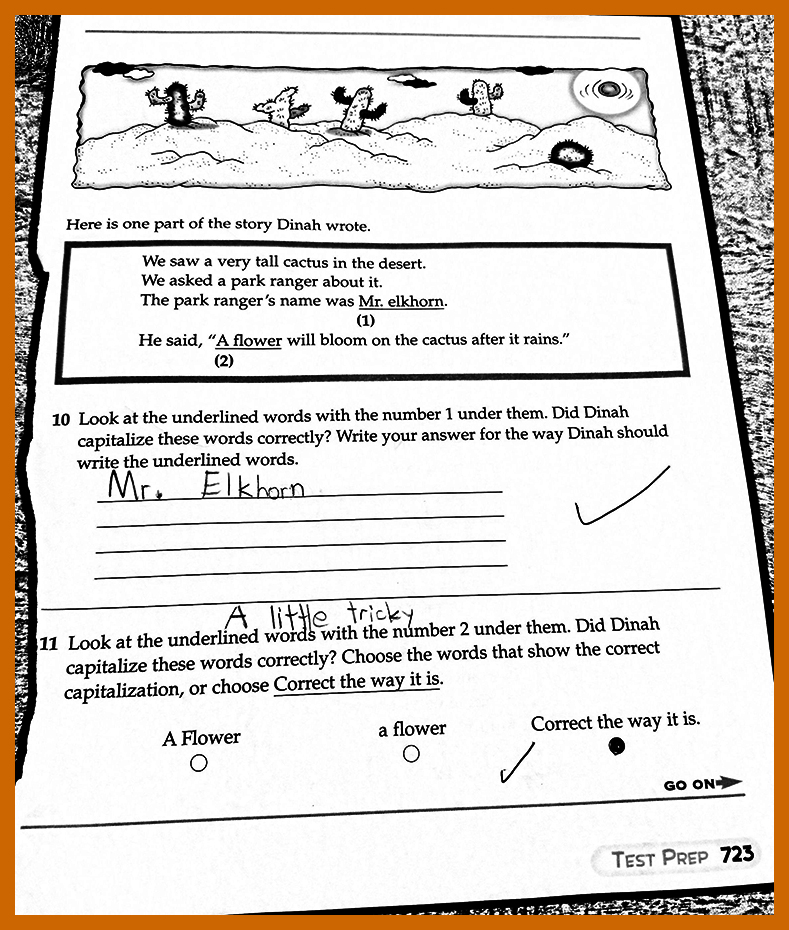 Here is one part of the story Dinah wrote.
We saw a very tall cactus in the desert.
We asked a park ranger about it.
The park ranger's name was Mr. elkhorn.
(1)
He said, "A flower will bloom on the cactus after it rains."
(2)
10 Look at the underlined words with the number 1 under them. Did Dinah
capitalize these words correctly? Write your answer for the way Dinah should
write the underlined words.
Mr. Elkhorn
A little tricky
11 Look at the underlined words with the number 2 under them. Did Dinah
capitalize these words correctly? Choose the words that show the correct
capitalization, or choose Correct the way it is.
A Flower a flower Correct the way it is.
GO ON
TEST PREP 723